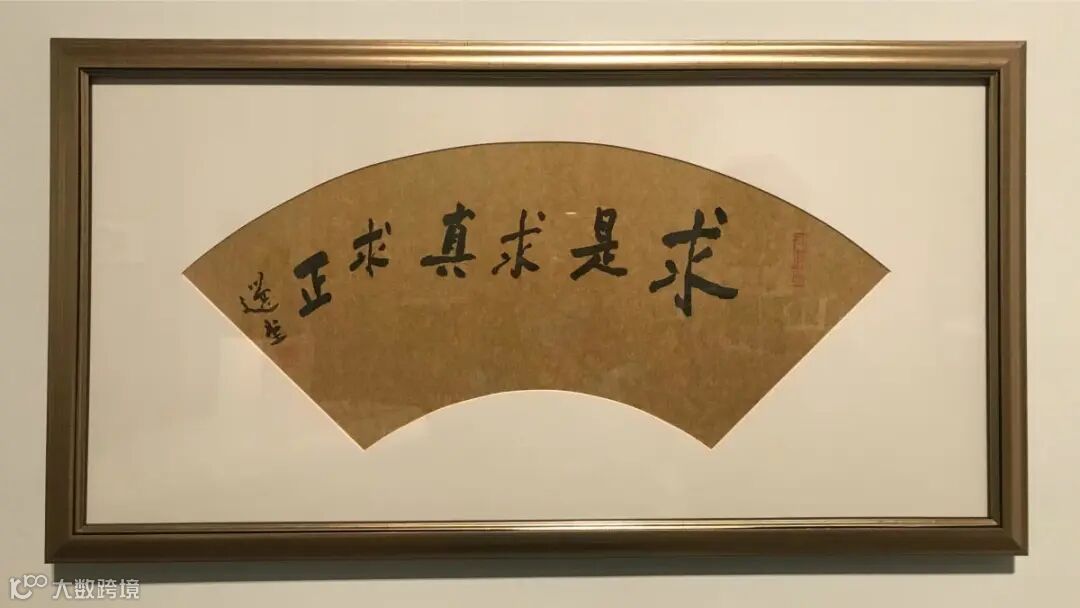 求是求真求正
選堂
大数跨境